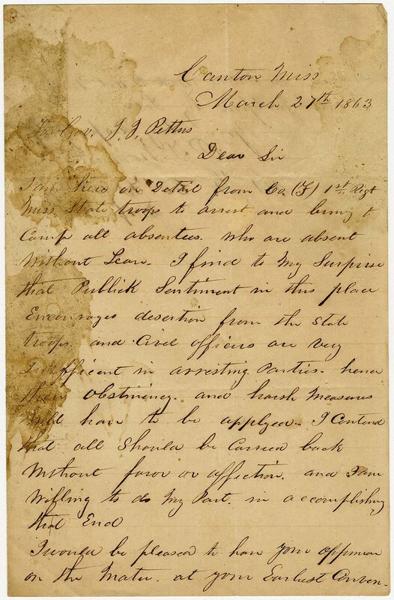 Canton Miss
March 27th 1863
To Gov. J. J. Pettus
Dear Sir
I am Here on Detail from Co, (F) 1st Regt
Miss State troops to arrest and bring to
Camp all absentees who are absent
Without Leave. I find to My Surprise
that Publick Sentiment in this place
Encourages desertion from the State
troops and Civil officers are very
Inefficient in arresting Parties. hence
their Obstinancy. and harsh Measures
have to be applyed. I Contend
that all Should be Carried back
Without favor or affection. and I am
Willing to do My Part. in accomplishing
that End
I would be pleased to have your oppinion
on the Matter. at your Earliest Conven-